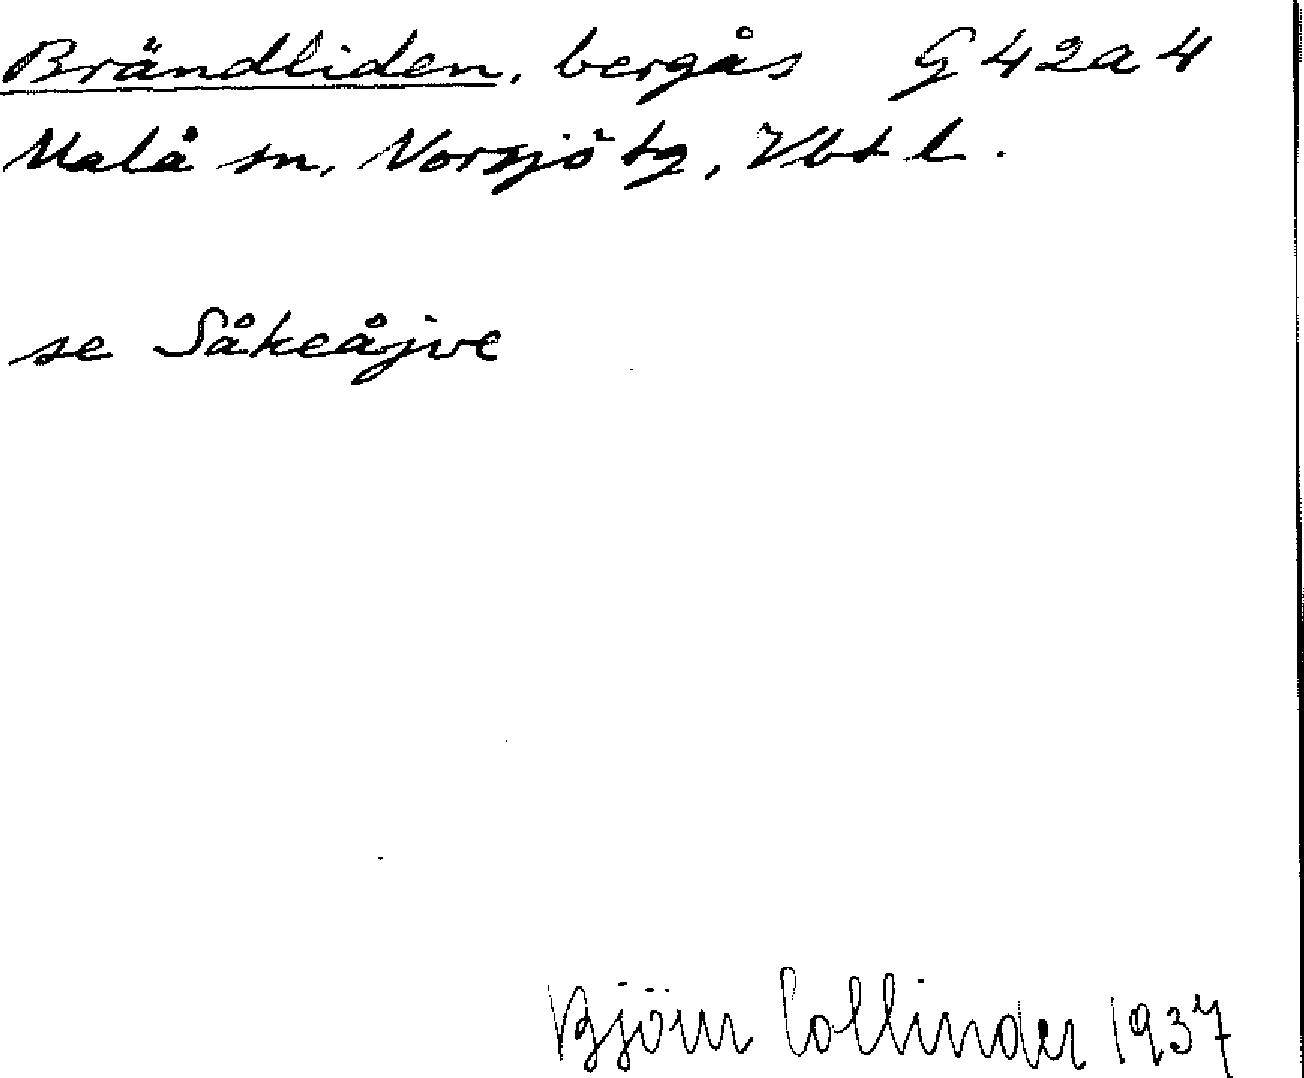 Brändliden, bergås G 42a 4
Malå sn, Norsjö tg, Vbt l.
se Såkeåjve
Björn Collinder 1937